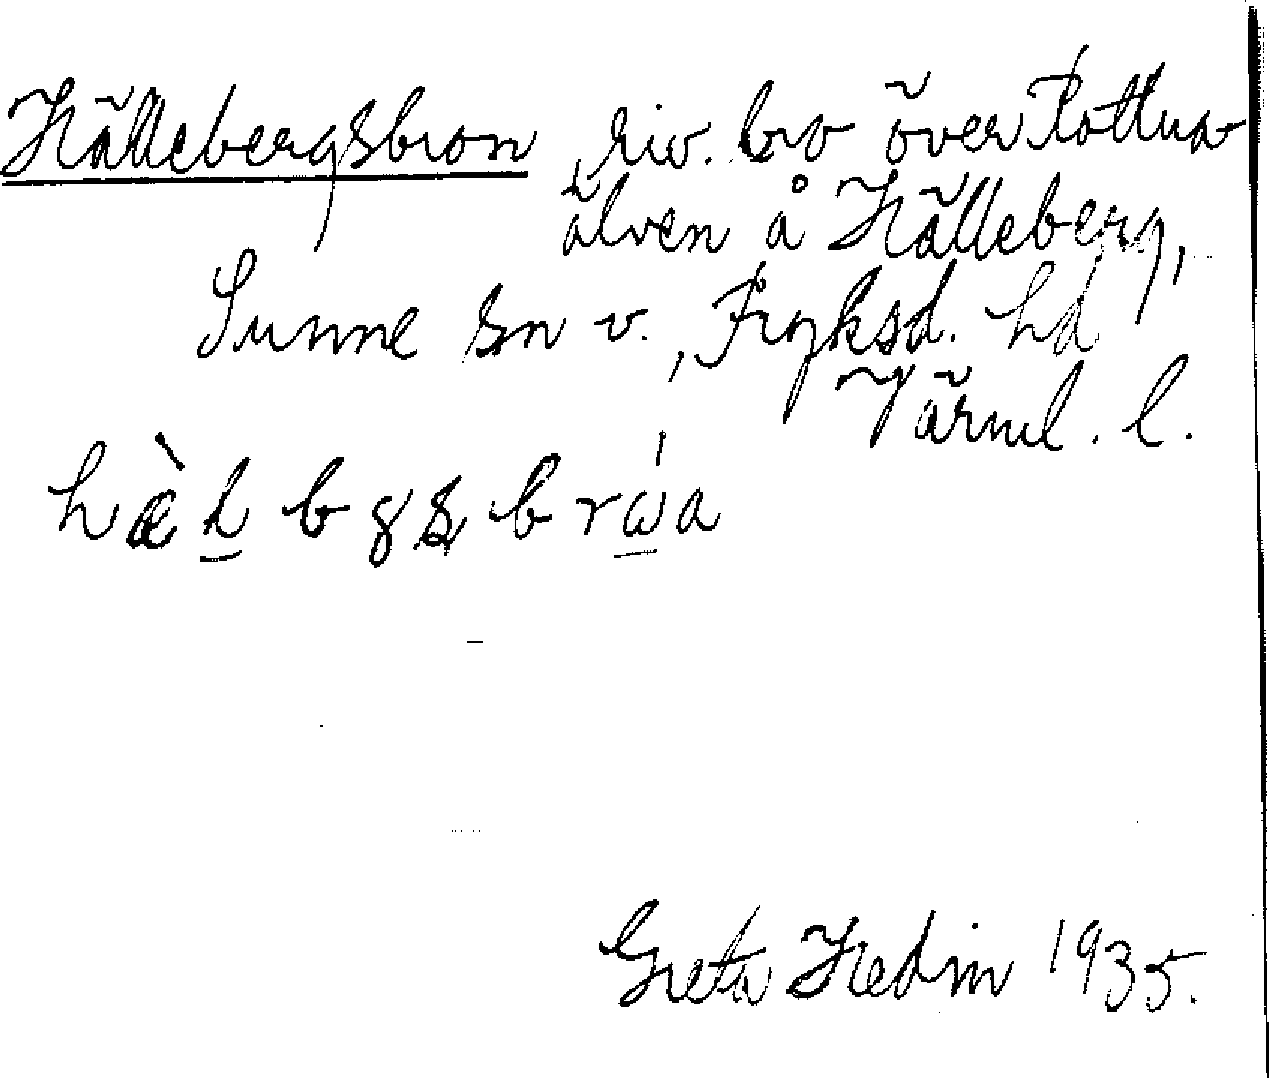 Hällebergsbron, riv. bro över Rottna-
älven å Hälleberg,
Sunne sn v., Fryksd. hd
Värml. l.
hæ̀l̠bgsbrώ̠a
Greta Hedin 1935.